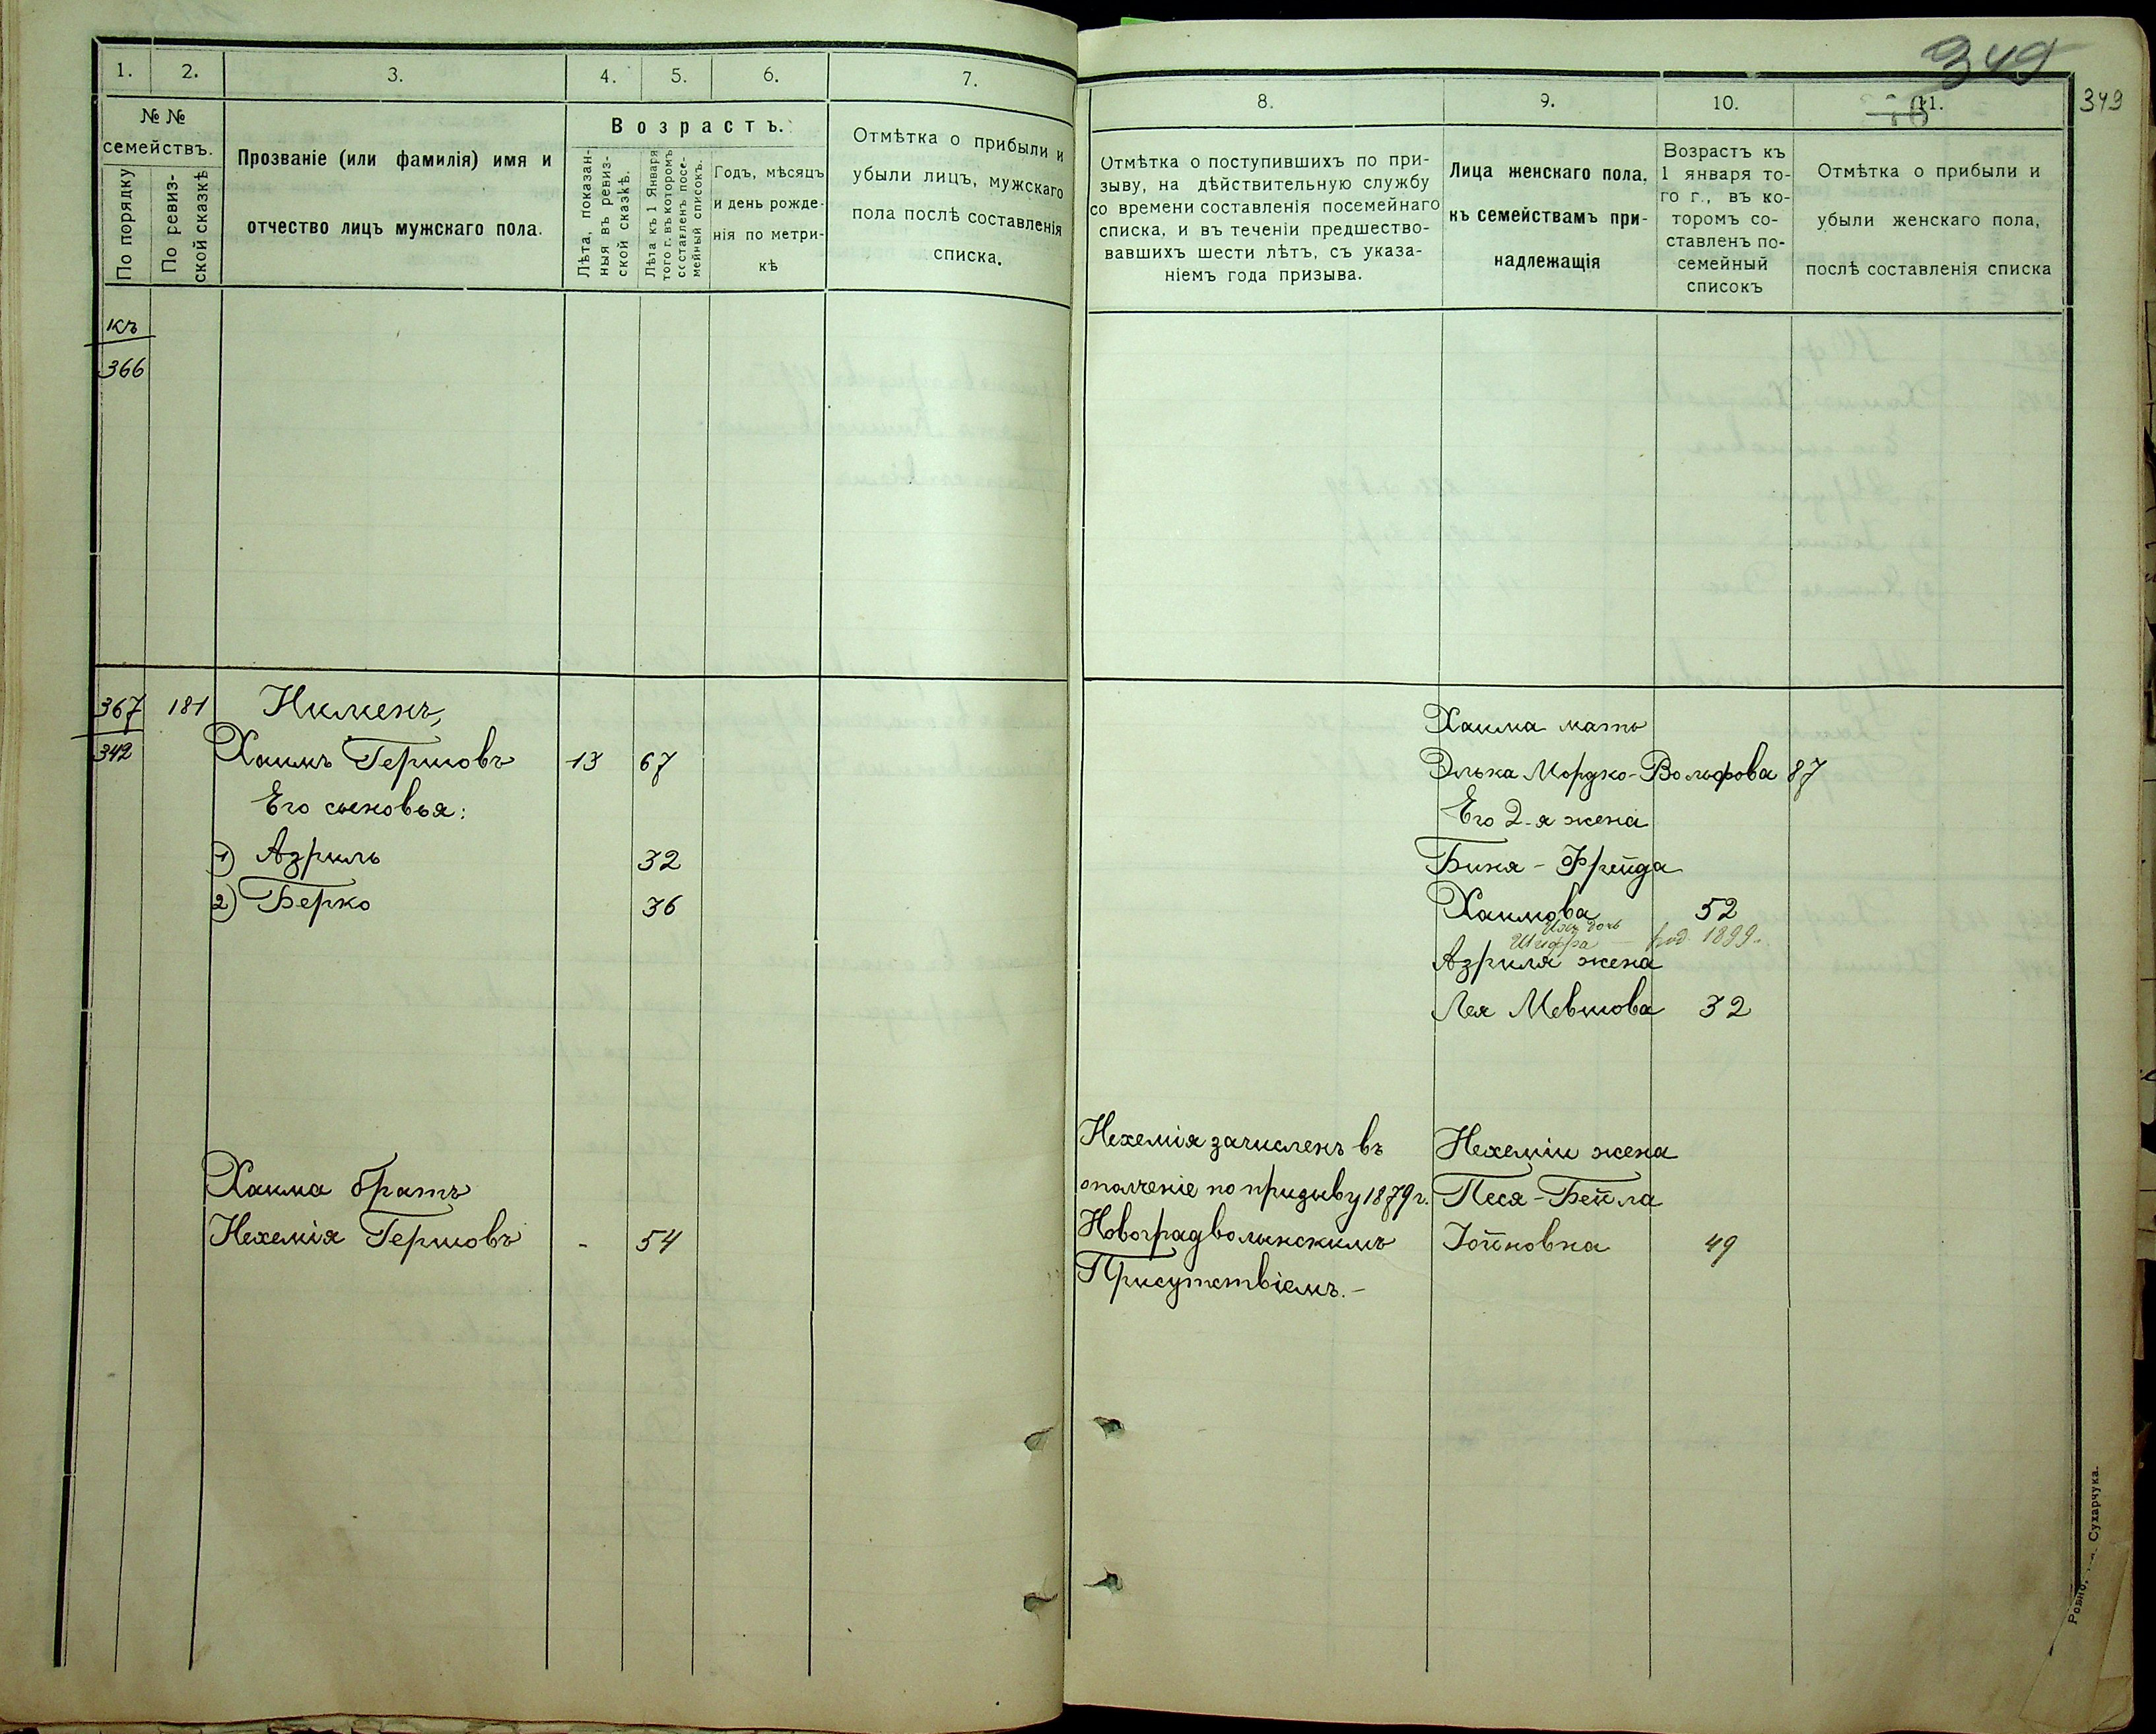 1.
2.
3.
4.
5.
6.
7.
№ №
семействъ.
По порядку
По ревиз-
ской сказкѣ
Прозваніе (или фамилія) имя и
отчество лицъ мужскаго пола.
Возрастъ.
Лѣта, показан-
ныя въ ревиз-
ской сказкѣ.
Лѣта къ 1 Января
того г. въ которомъ
составленъ посе-
мейный списокъ.
Годъ, мѣсяцъ
и день рожде-
нія по метри-
кѣ
Отмѣтка о прибыли и
убыли лицъ, мужскаго
пола послѣ составленія
списка.
къ
366
367 181 Нименъ,
342 Хаимъ Гершовъ 13 67
Его сыновья:
1) Азриль 32
2) Берко 36
Хаима братъ
Нехемія Гершовъ - 54
349
343
8.
9.
10.
11.
Отмѣтка о поступившихъ по при-
зыву, на дѣйствительную службу
со времени составленія посемейнаго
списка, и въ теченіи предшество-
вавшихъ шести лѣтъ, съ указа-
ніемъ года призыва.
Лица женскаго пола,
къ семействамъ при-
надлежащія
Возрастъ къ
1 января то-
го г., въ ко-
торомъ со-
ставленъ по-
семейный
списокъ
Отмѣтка о прибыли и
убыли женскаго пола,
послѣ составленія списка
Хаима мать
Элька Мордко-Вольфова 87
Его 2-я жена
Биня-Фрейда
Хаимова 52
Ихъ дочь
Шифра — род. 1899.
Азриля жена
Лея Мевшова 32
Нехемія зачисленъ въ
ополченіе по призыву 1879 г.
Новоградволынскимъ
Присутствіемъ.-
Нехеміи жена
Песя-Бейла
Іойновна 49
Сухарчука.